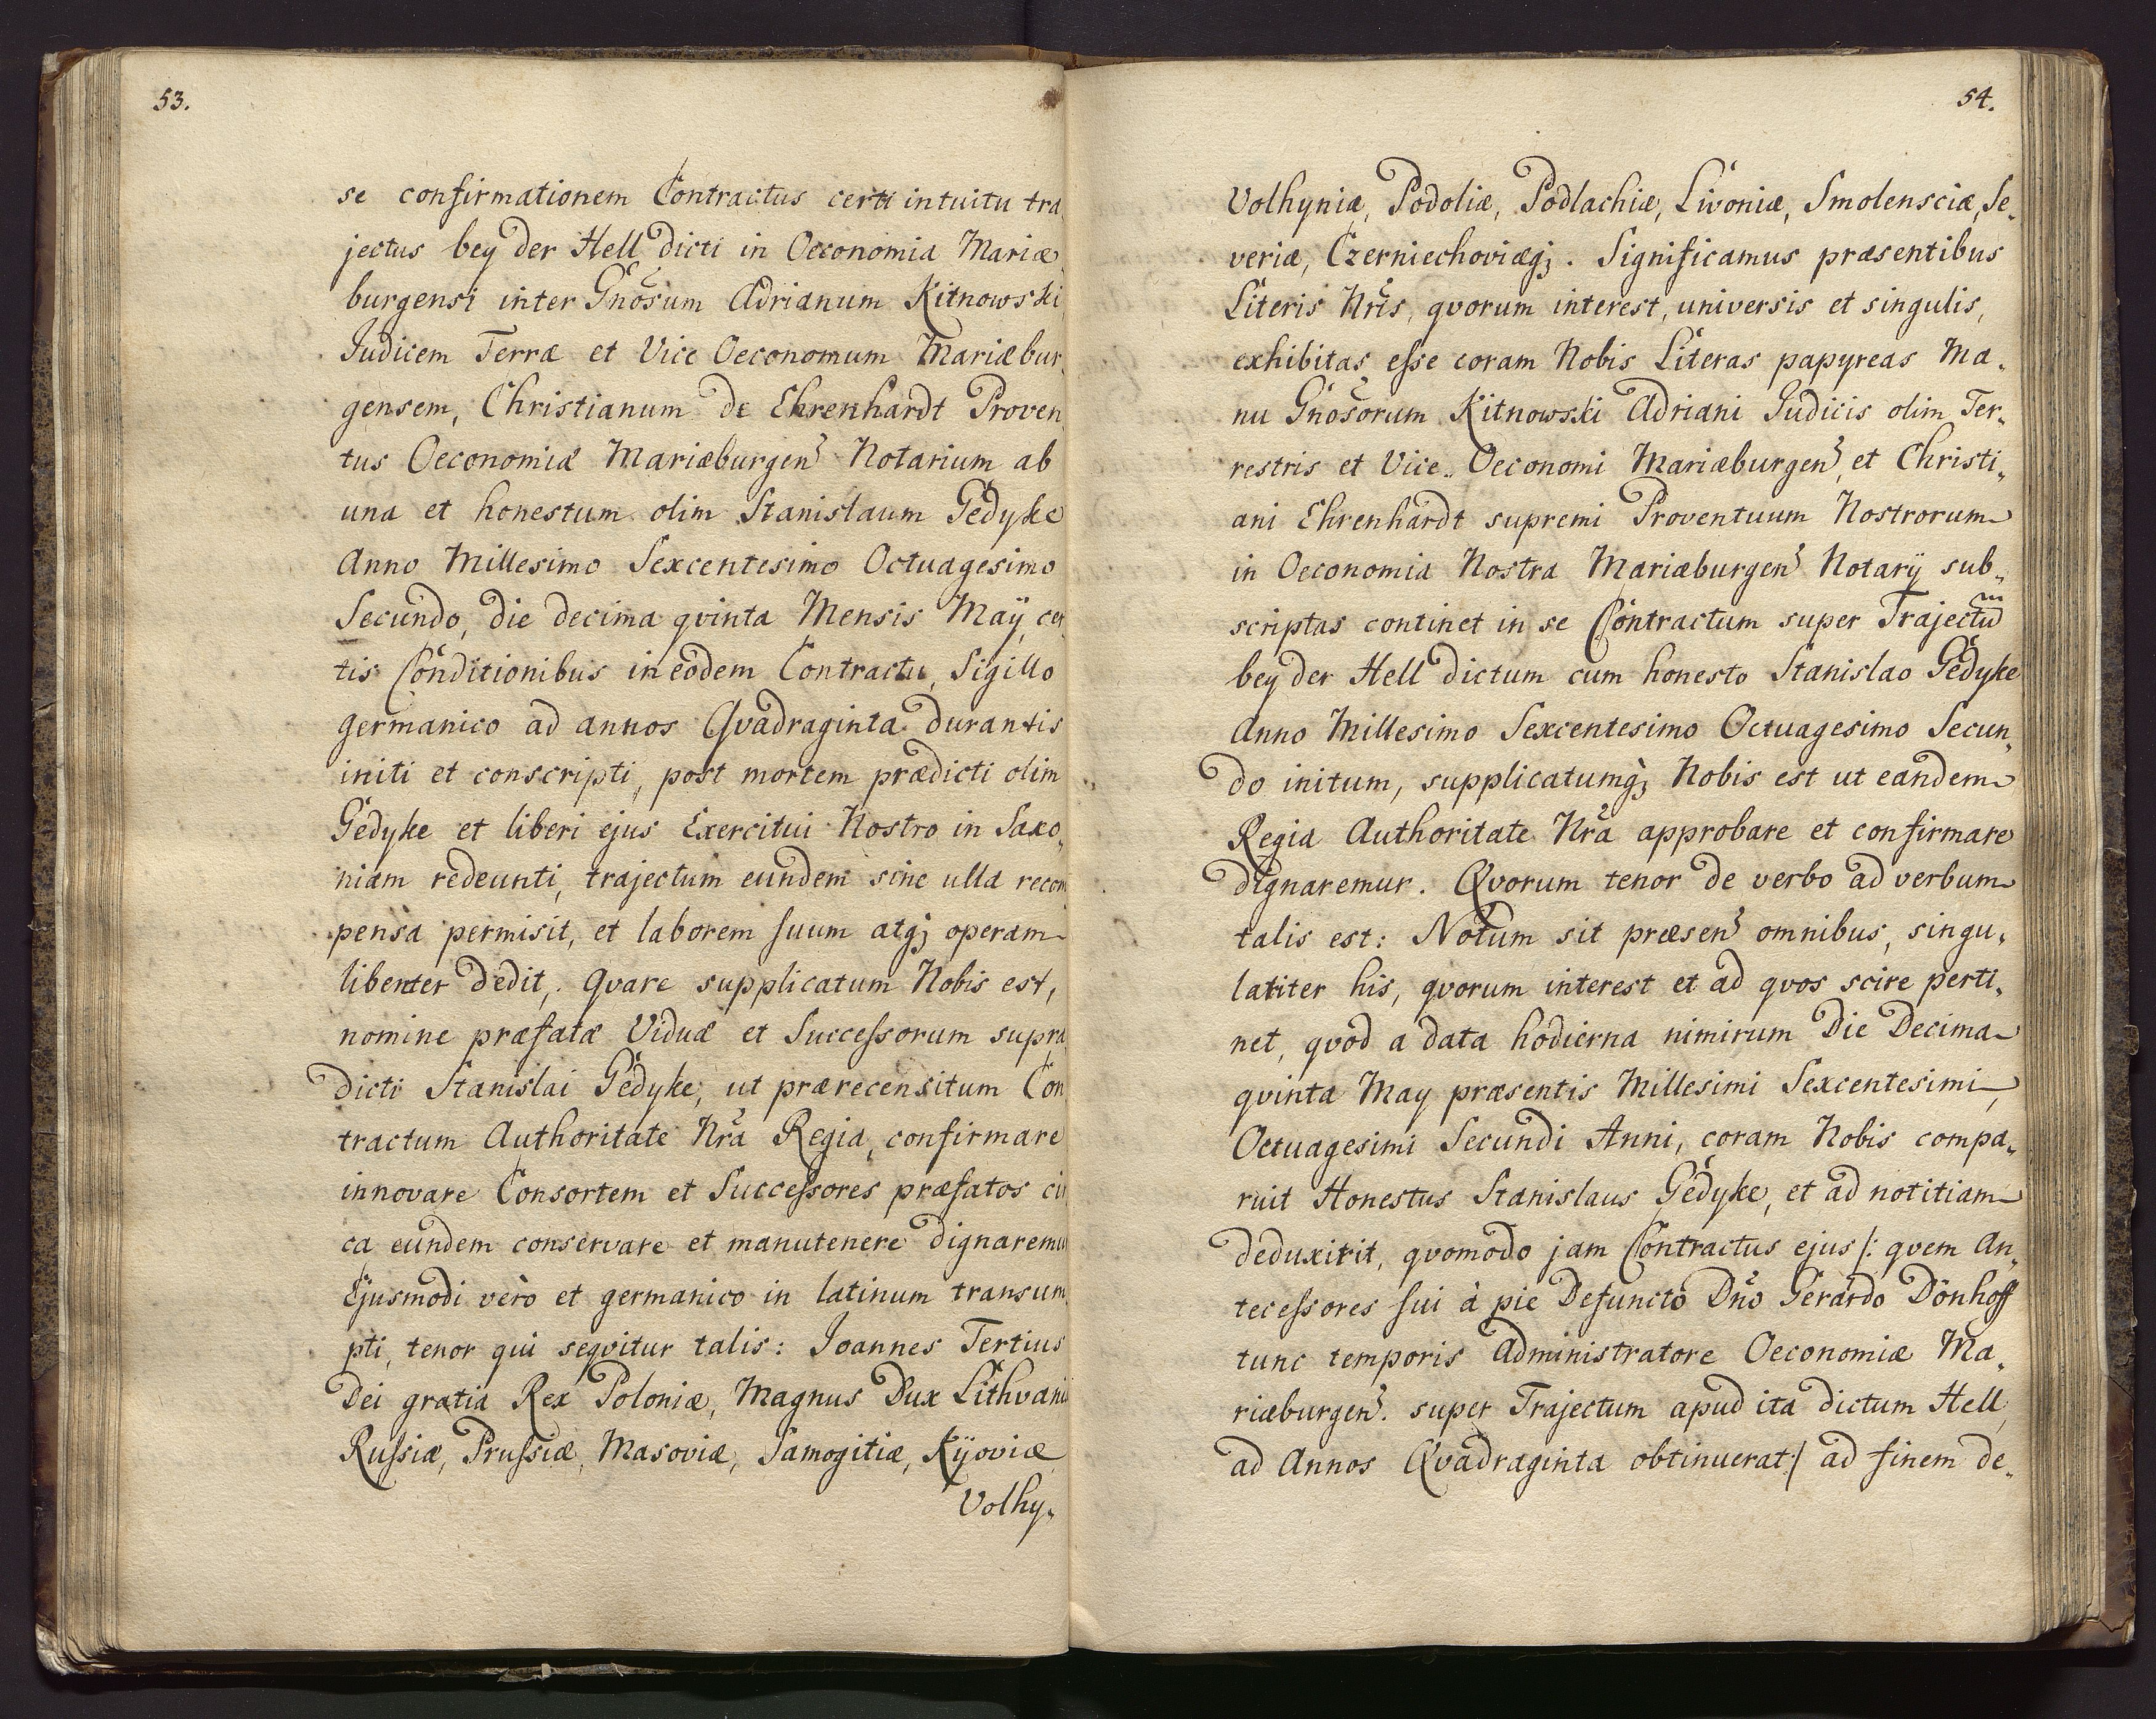 53.
se confirmationem Contractus certi intuitu tra
jectus bey der Hell dicti in Oeconomia Mariæ
burgensi inter Gnosum Adrianum Kitnowski
Judicem Terræ et Vice Oeconomum Mariæbur
gensem, Christianum de Ehrenhardt Proven
tus Oeconomiæ Mariæburgen Notarium ab
una et honestum olim Stanislaum Gedyke
Anno Millesimo Sexcentesimo Octuagesimo
Secundo, die decima qvinta Mensis Maÿ, cer
tis Conditionibus in eodem Contractu, Sigillo
germanico ad annos Qvadraginta durantis
initi et conscripti, post mortem prædicti olim
Gedyke et liberi ejus Exercitui Nostro in Saxo
niam redeunti, trajectum eundem sine ulla recom
pensa permisit, et laborem suum atq; operam
libenter dedit, Qvare supplicatum Nobis est,
nomine præfatæ Viduæ et Successorum supra
dicti Stanislai Gedyke, ut prærecensitum Con
tractum Authoritate Nra Regia, confirmare
innovare Consortem et Successores præfatos cir
ca eundem conservare et manutenere dignaremur
Ejusmodi vero et germanico in latinum transum
pti, tenor qui seqvitur talis: Joannes Tertius
Dei gratia Rex Poloniæ, Magnus Dux Lithvaniæ
Russiæ, Prussiæ, Masoviæ, Samogitiæ, Kÿoviæ
Volhy„
54.
Volhyniæ, Podoliæ, Podlachiæ, Livoniæ, Smolensciæ, Se„
veriæ, Czerniechoviæq;. Significamus præsentibus
Literis Nris, qvorum interest, universis et singulis,
exhibitas esse coram Nobis Literas papyreas Ma„
nu Gnosorum Kitnowski Adriani Judicis olim Ter„
restris et Vice„ Oeconomi Mariæburgen, et Christi„
ani Ehrenhardt supremi Proventuum Nostrorum
in Oeconomia Nostra Mariæburgen Notarÿ sub„
scriptas continet in se Contractum super Trajectum
bey der Hell dictum cum honesto Stanislao Gedyke
Anno Millesimo Sexcentesimo Octuagesimo Secun„
do initum, supplicatumq; Nobis est ut eandem
Regia Authoritate Nra approbare et confirmare
dignaremur. Qvorum tenor de verbo ad verbum
talis est: Notum sit præsen omnibus, singu„
lariter his, qvorum interest et ad qvos scire perti„
net, qvod a data hodierna nimirum Die Decima
qvinta May præsentis Millesimi Sexcentesimi
Octuagesimi Secundi Anni, coram Nobis compa„
ruit Honestus Stanislaus Gedyke, et ad notitiam
deduxirit, qvomodo jam Contractus ejus /: qvem An„
tecessores sui à pie Defuncto Dno Gerardo Dönhoff
tunc temporis Administratore Oeconomiæ Ma„
riæburgen. super Trajectum apud ita dictum Hell,
ad Annos Qvadraginta obtinuerat :/ ad finem de„